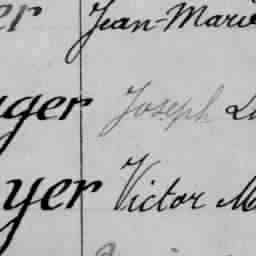 er Jean-Marie
ger Joseph
yer Victor M